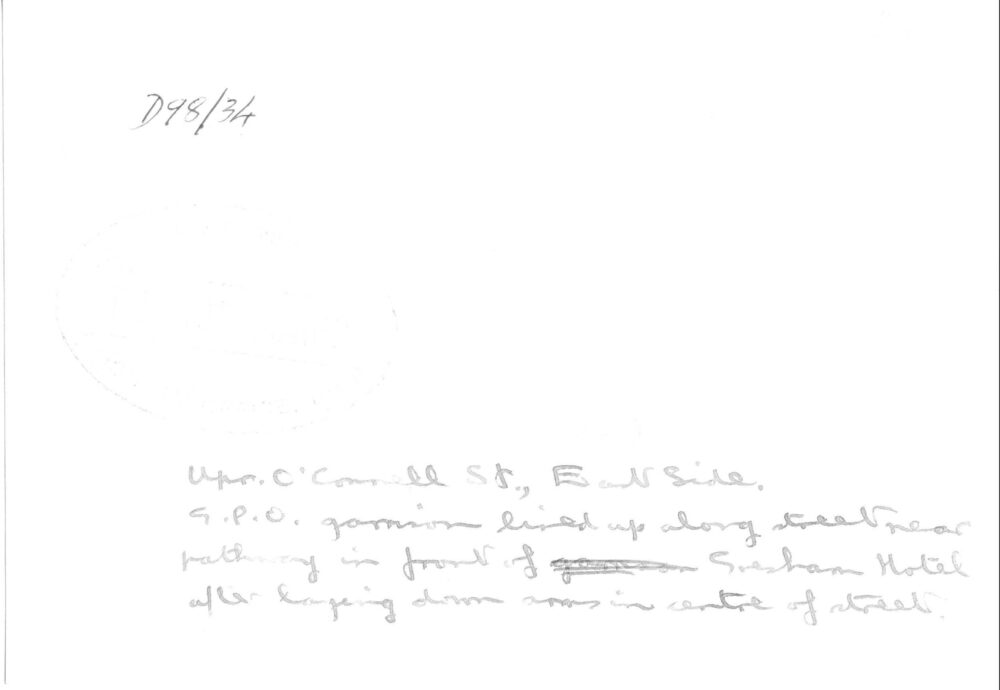 D98/34
Upr. O'Connell St., East Side.
G.P.O. garrison lined up along street near
pathway in front of Gresham Hotel
after laying down arms in centre of street.